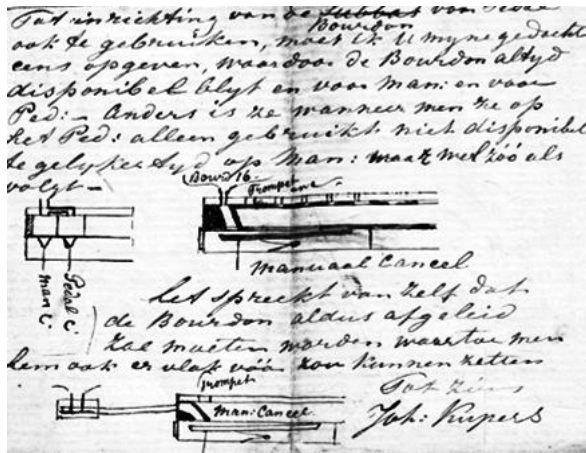 Tot inrichting van de Subbas voor Pedal
Bourdon
ook te gebruiken, moet ik U myne gedachte
eens opgeven, waardoor de Bourdon altyd
disponibel blyft en voor Man: en voor
Ped: – Anders is ze wanneer men ze op
het Ped: alleen gebruikt niet disponibel
te gelyker tyd op Man: maar wel zóó als
volgt –
Bourd 16.
Trompet
man C.
Pedal C.
Manuaal Cancel
Het spreekt van zelf dat
de Bourdon aldus afgeleid
zal moeten worden waartoe men
hem ook er vlak vóór zou kunnen zetten
Trompet
Man: Cancel.
Tot ziens
Joh: Kupers